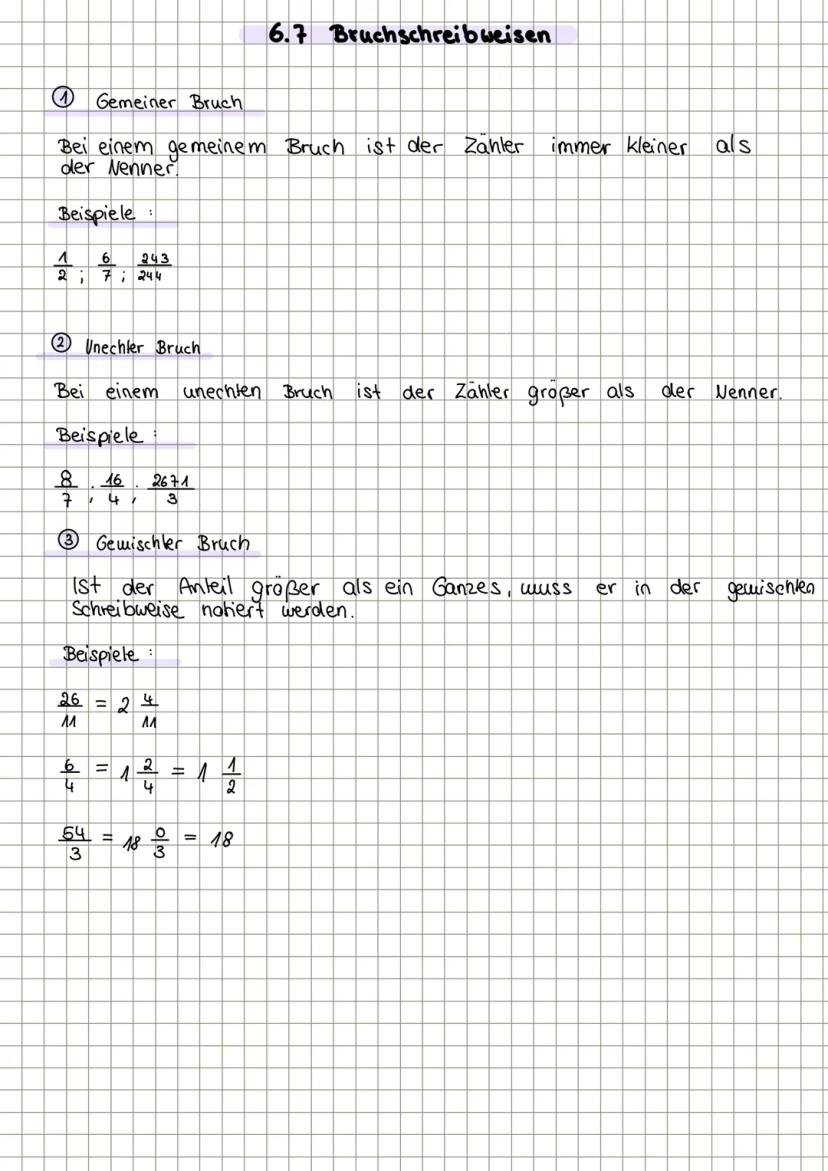 6.7 Bruchschreibweisen
① Gemeiner Bruch
Bei einem gemeinem Bruch ist der Zähler immer kleiner als
der Nenner.
Beispiele :
1/2 ; 6/7 ; 243/244
② Unechter Bruch
Bei einem unechten Bruch ist der Zähler größer als der Nenner.
Beispiele :
8/7 ; 16/4 ; 2671/3
③ Gemischter Bruch
Ist der Anteil größer als ein Ganzes, muss er in der gemischten
Schreibweise notiert werden.
Beispiele :
26/11 = 2 4/11
6/4 = 1 2/4 = 1 1/2
54/3 = 18 0/3 = 18